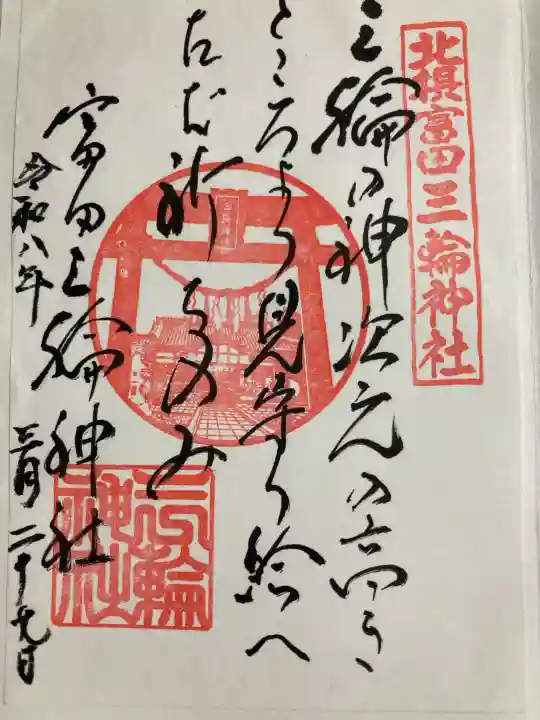 北摂富田三輪神社
三輪の神次元の高き
ところより見守り給へ
祈るのみ
富田三輪神社
令和八年 三月二十九日
三輪神社
三輪神社